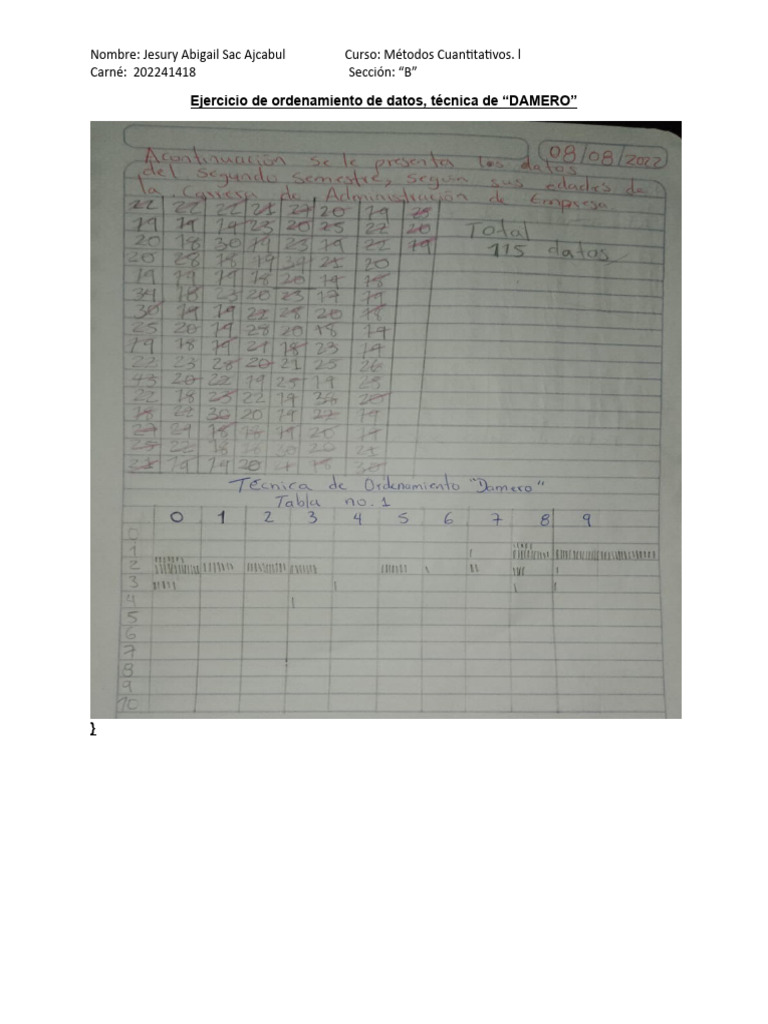 Nombre: Jesury Abigail Sac Ajcabul Curso: Métodos Cuantitativos. l
Carné: 202241418 Sección: “B”
Ejercicio de ordenamiento de datos, técnica de “DAMERO”
08/08/2022
Acontinuación se le presenta los datos
del segundo semestre, según sus edades de
la Carrera de Administración de Empresa
22 22 22 21 27 20 19 25
19 19 19 23 20 25 22 20
20 18 30 19 23 19 22 19
20 28 18 19 39 21 20
19 19 19 18 20 19 18
34 18 23 20 23 17 19
30 19 19 22 28 20 18
25 20 19 28 20 18 19
19 18 19 21 18 23 19
22 23 28 20 21 25 26
43 20 22 19 25 19 25
22 18 23 22 19 20
18 30 20 19 27 19
27 18 18 19 20 19
22 18 30 20 21
19 19 20 18 30
Total
115 datos
Técnica de Ordenamiento "Damero"
Tabla no. 1
0 1 2 3 4 5 6 7 8 9
0
1
2
3
4
5
6
7
8
9
10
}